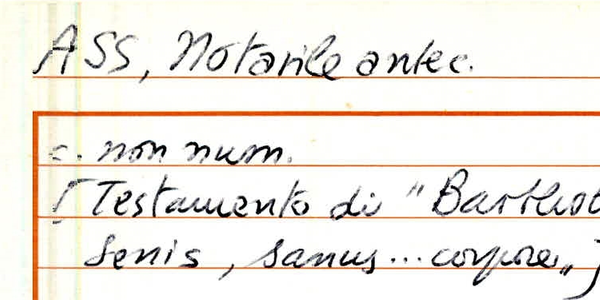 ASS, Notarile antec.
c. non num.
[Testamento di "Barthol
Senis, sanus... corpore"]